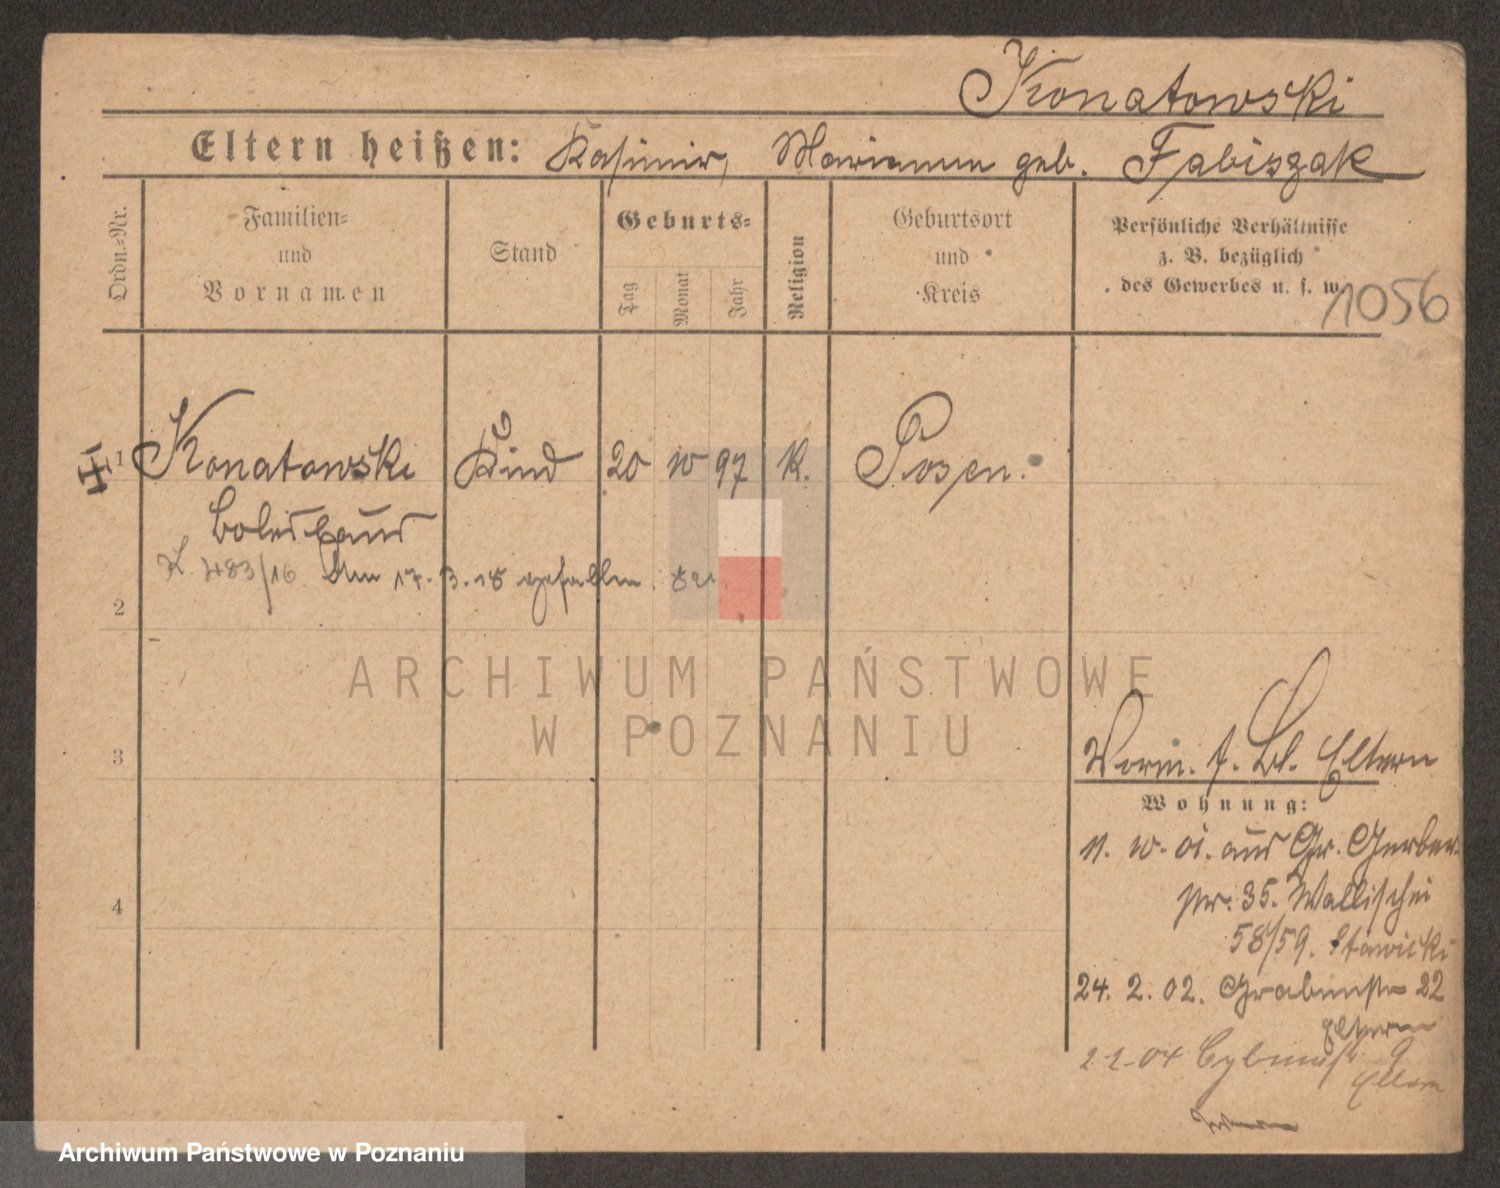 Konatowski
Eltern heißen: Kasimir, Marianna geb. Fabiszak
Ordn.-Nr.
Familien-
und
Vornamen
Stand
Geburts-
Tag
Monat
Jahr
Religion
Geburtsort
und
Kreis
Persönliche Verhältnisse
z. B. bezüglich
des Gewerbes u. s. w.
1056
1 Konatowski Kind 20 10 97 K. Posen.
Boleslaus
K 483/16 Am 17.3.18 gefallen.
2
3
4
Vorm. f. Bl. Eltern
Wohnung:
11. 10. 01. aus Gr. Gerber-
str. 35. Wallischei
58/59. Stawicki
24. 2. 02. Grabenstr 22
Eltern
2-2-04 9
Eltern
ARCHIWUM PAŃSTWOWE
W POZNANIU
Archiwum Państwowe w Poznaniu